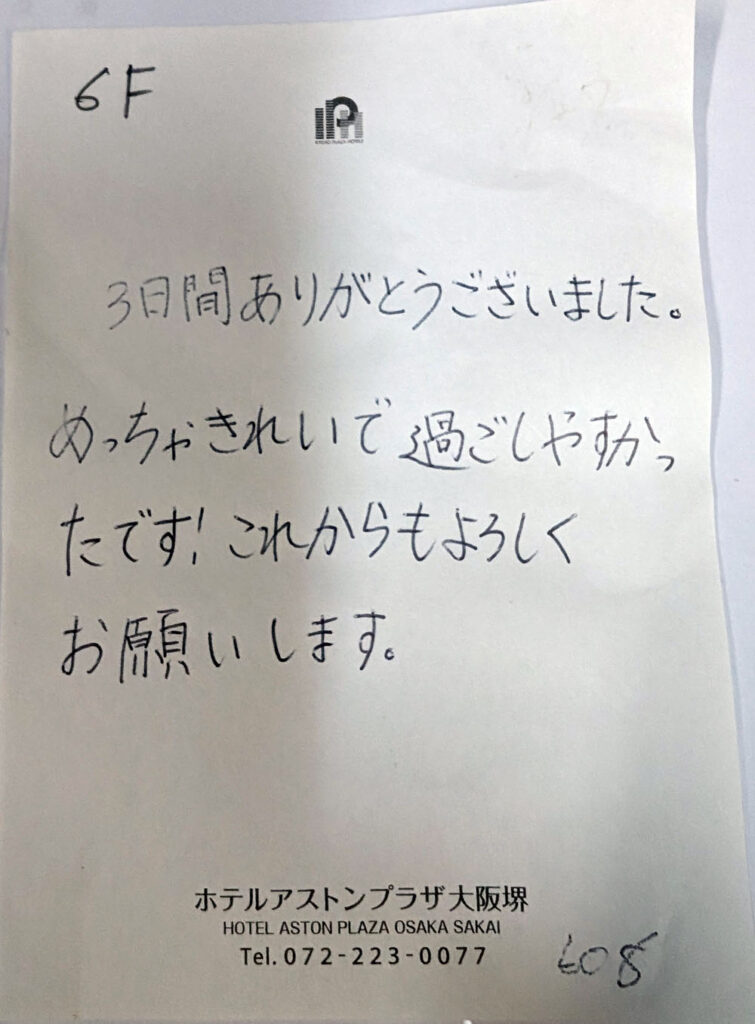 6F
3日間ありがとうございました。
めっちゃきれいで過ごしやすかっ
たです!これからもよろしく
お願いします。
ホテルアストンプラザ大阪堺
HOTEL ASTON PLAZA OSAKA SAKAI
Tel.072-223-0077
608